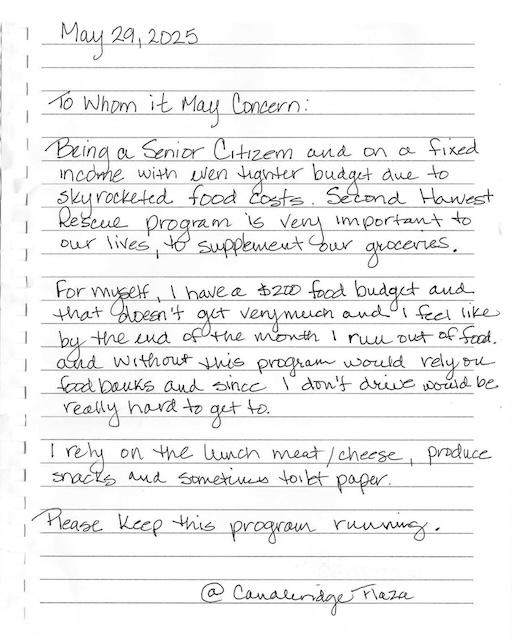 May 29, 2025
To Whom it May Concern:
Being a Senior Citizen and on a fixed
income with even tighter budget due to
skyrocketed food costs. Second Harvest
Rescue program is very important to
our lives, to supplement our groceries.
For myself, I have a $200 food budget and
that doesn't get very much and I feel like
by the end of the month I run out of food.
and without this program would rely on
foodbanks and since I don't drive would be
really hard to get to.
I rely on the lunch meat/cheese, produce
snacks and sometimes toilet paper.
Please keep this program running.
@ Plaza